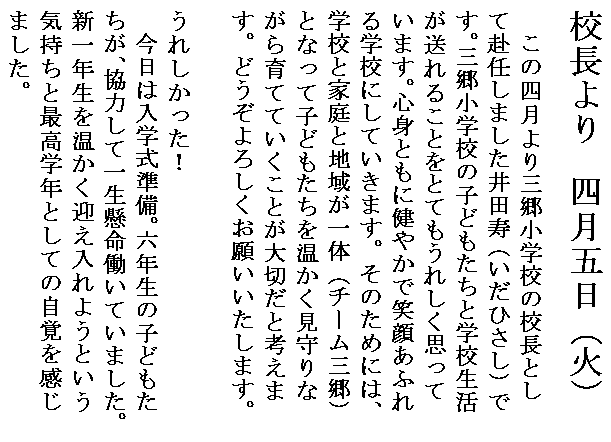 校長より　四月五日（火）
　この四月より三郷小学校の校長とし
て赴任しました井田寿（いだひさし）で
す。三郷小学校の子どもたちと学校生活
が送れることをとてもうれしく思って
います。心身ともに健やかで笑顔あふれ
る学校にしていきます。そのためには、
学校と家庭と地域が一体（チーム三郷）
となって子どもたちを温かく見守りな
がら育てていくことが大切だと考えま
す。どうぞよろしくお願いいたします。
うれしかった！
　今日は入学式準備。六年生の子どもた
ちが、協力して一生懸命働いていました。
新一年生を温かく迎え入れようという
気持ちと最高学年としての自覚を感じ
ました。